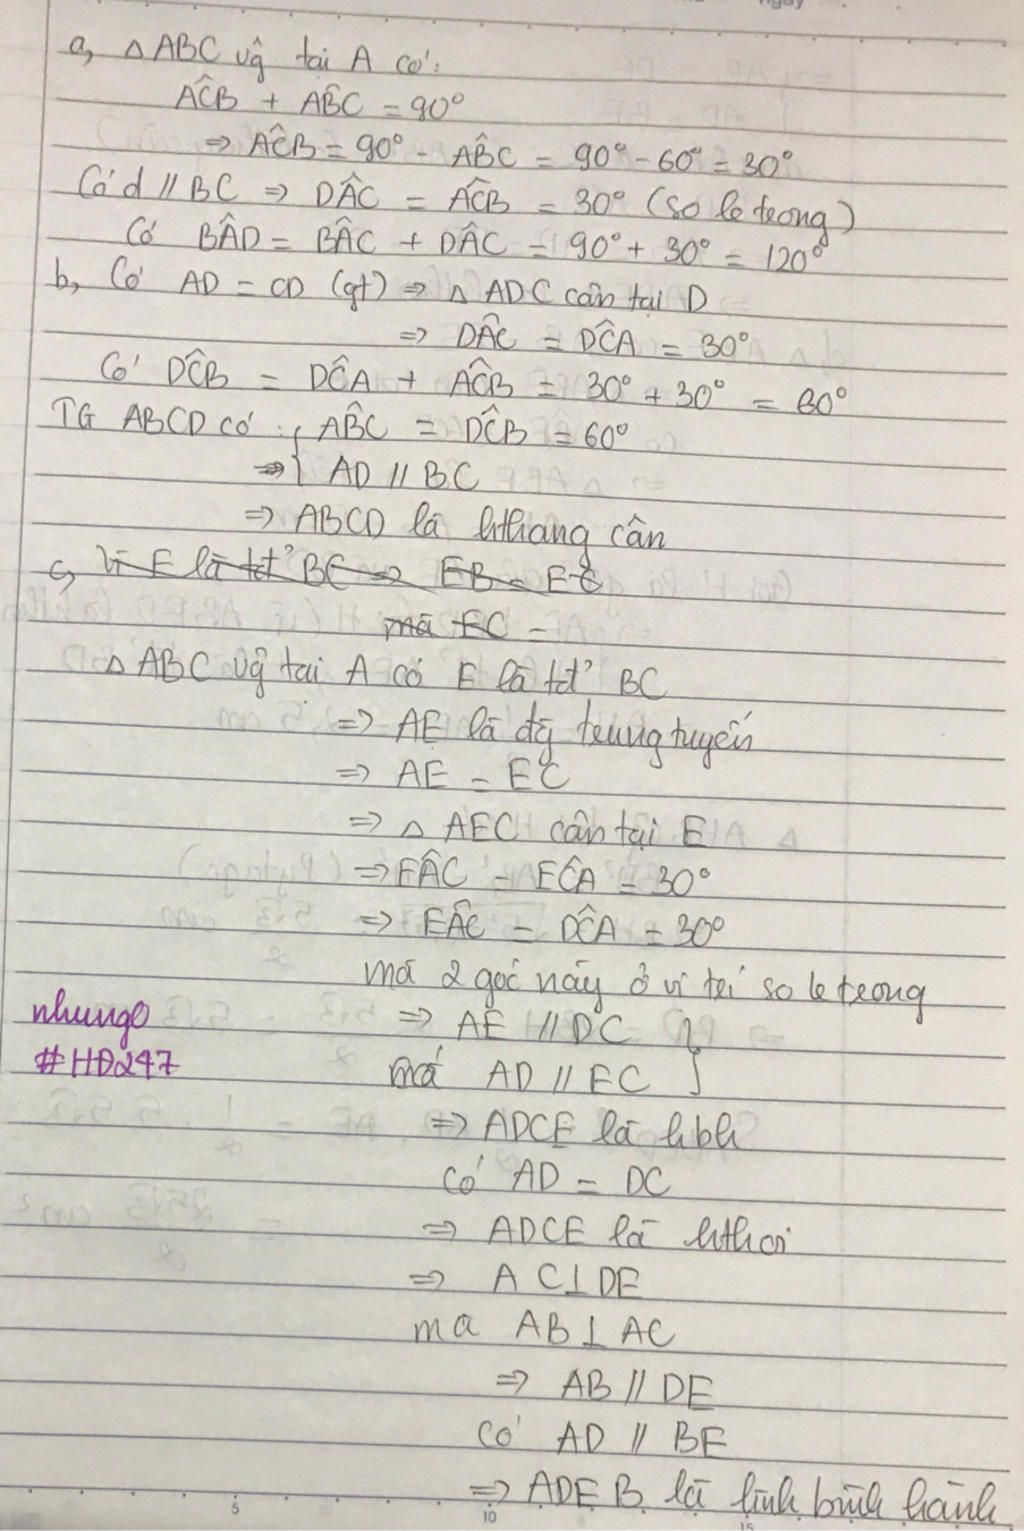 a, △ABC vg̑ tại A có:
AĈB + AB̂C = 90°
⇒ AĈB = 90° - AB̂C = 90° - 60° = 30°
Có d // BC ⇒ DÂC = AĈB = 30° (so le trong)
Có BÂD = BÂC + DÂC = 90° + 30° = 120°
b, Có AD = CD (gt) ⇒ △ ADC cân tại D
⇒ DÂC = DĈA = 30°
Có DĈB = DĈA + AĈB = 30° + 30° = 60°
TG ABCD có : { AB̂C = DĈB = 60°
⇒ AD // BC
⇒ ABCD là hthang cân
c, Vì E là tđ' BC ⇒ EB = EC
mà EC =
△ ABC vg̑ tại A có E là tđ' BC
⇒ AE là đg̀ trung tuyến
⇒ AE = EC
⇒ △ AEC cân tại E
⇒ EÂC = EĈA = 30°
⇒ EÂC = DĈA = 30°
mà 2 góc này ở vị trí so le trong
⇒ AE // DC }
mà AD // EC
⇒ ADCE là hbh
có AD = DC
⇒ ADCE là hthoi
⇒ AC ⊥ DE
ma AB ⊥ AC
⇒ AB // DE
Có AD // BE
⇒ ADEB là hình bình hành
nhung0
#HĐ247
5
10
15